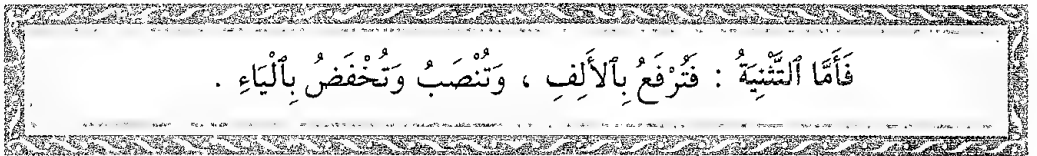 فَأَمَّا ٱلتَّثْنِيَةُ : فَتُرْفَعُ بِٱلأَلِفِ ، وَتُنْصَبُ وَتُخْفَضُ بِٱلْيَاءِ .